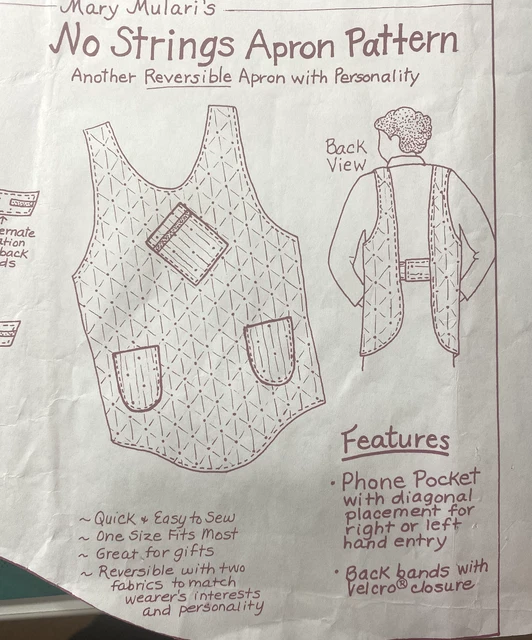 Mary Mulari's
No Strings Apron Pattern
Another Reversible Apron with Personality
Back
View
back
Features
• Phone Pocket
with diagonal
placement for
right or left
hand entry
• Back bands with
Velcro® closure
~ Quick & Easy to Sew
~ One Size Fits Most
~ Great for gifts
~ Reversible with two
fabrics to match
wearer's interests
and personality